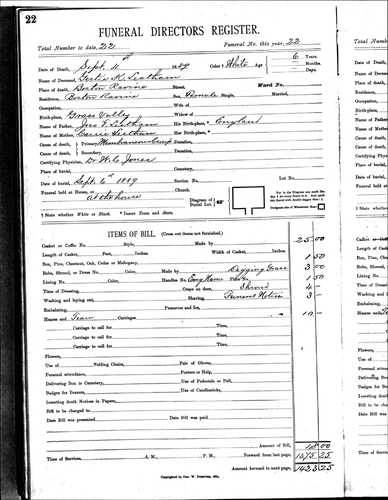 22
FUNERAL DIRECTORS REGISTER.
Total Number to date, 22 Funeral No. this year, 22
Date of Death, Sept. 4th 1889 Color † White Age 6 Years.
Months.
Days.
Name of Deceased, Gertie K. Leatham
Place of death, Boston Ravine Street, Ward No.
Residence, Boston Ravine Female Single, Married,
Occupation, Wife of
Birth-place, Grass Valley Widow of
Name of Father, Jas. F. Leatham His Birth-place, * England
Name of Mother, Carrie Leatham Her Birth-place, *
Cause of death, Primary, Membraneous Croup Duration,
Cause of death, Secondary, Duration,
Certifying Physician, Dr W. C. Jones
Place of burial,
Date of burial, Sept. 6th 1889 Section No. Lot No.
Funeral held at House, or at the house Church.
Diagram of Burial Lot,
Put in the Diagram we mark
Designate site of Monument thus
† State whether White or Black. * Insert Town and State.
ITEMS OF BILL. (Cross out items not furnished.)
Casket or Coffin No. Style, 25.00
Length of Casket, Feet, Inches. Width of Casket, Inches.
Box, Pine, Chestnut, Oak, Cedar or Mahogany, 1.50
Robe, Shroud, or Dress No. Color, Made by Digging Grave 3.00
Lining No. Color, Handles No. Eng Name Plate No. 1.50
Time of Dressing, Crape on door, 4 –
Washing and laying out, Shaving, Funeral Notice 3 –
Embalming, Preserver and Ice,
Hearse and Team Carriages 10 –
Carriage to call for Time,
Carriage to call for Time,
Carriage to call for Time,
Carriage to call for Time,
Flowers,
Use of Folding Chairs, Pair of Gloves,
Personal attendance, Porters or Help,
Delivering Box to Cemetery, Use of Pedestals or Pall,
Badges for Bearers, Use of Candlesticks,
Inserting death Notices in Papers,
Bill to be charged to
Date Bill was presented Date Bill was paid
Amount of Bill, 48.00
Time of Services, A. M., P. M. Forward from last page, 1375.25
Amount forward to next page, 1423.25
Copyrighted by Geo. W.